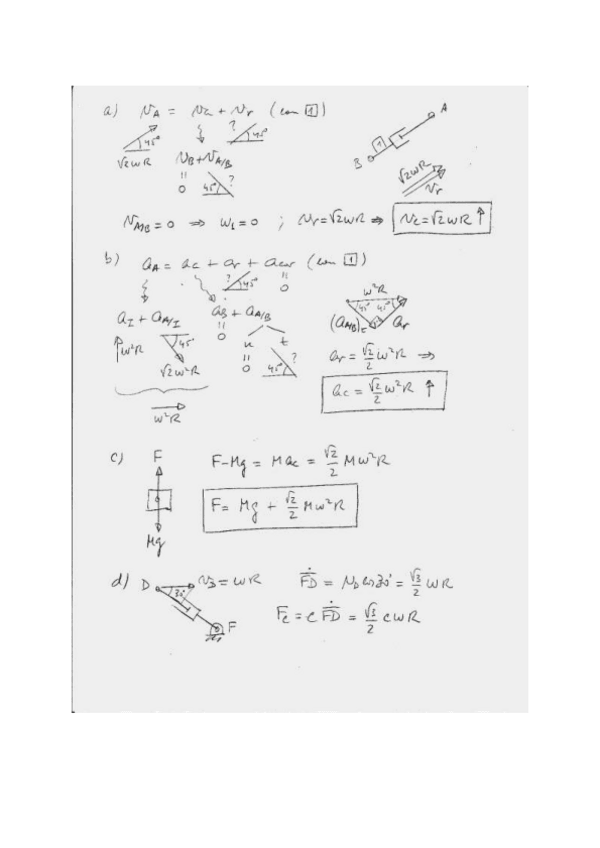 a) v_A = v_c + v_r (con 1)
45° ? 45°
√2ωR v_B + v_A/B
0 45° ?
A
1
B
√2ωR
v_r
v_A/B = 0 ⇒ ω_1 = 0 ; v_r = √2ωR ⇒ v_c = √2ωR ↑
b) a_A = a_c + a_r + a_cor (con 1)
? 45° 0
a_I + a_A/I a_B + a_A/B
↑ω²R 45° 0 n t
√2ω²R 0 45° ?
ω²R
ω²R
45° 45°
(a_A/B)_t a_r
a_r = √2/2 ω²R ⇒
a_c = √2/2 ω²R ↑
c) F
Mg
F-Mg = Ma_c = √2/2 Mω²R
F = Mg + √2/2 Mω²R
d) D 30° v_D = ωR
F
FD = v_D cos30° = √3/2 ωR
F_c = c FD = √3/2 cωR